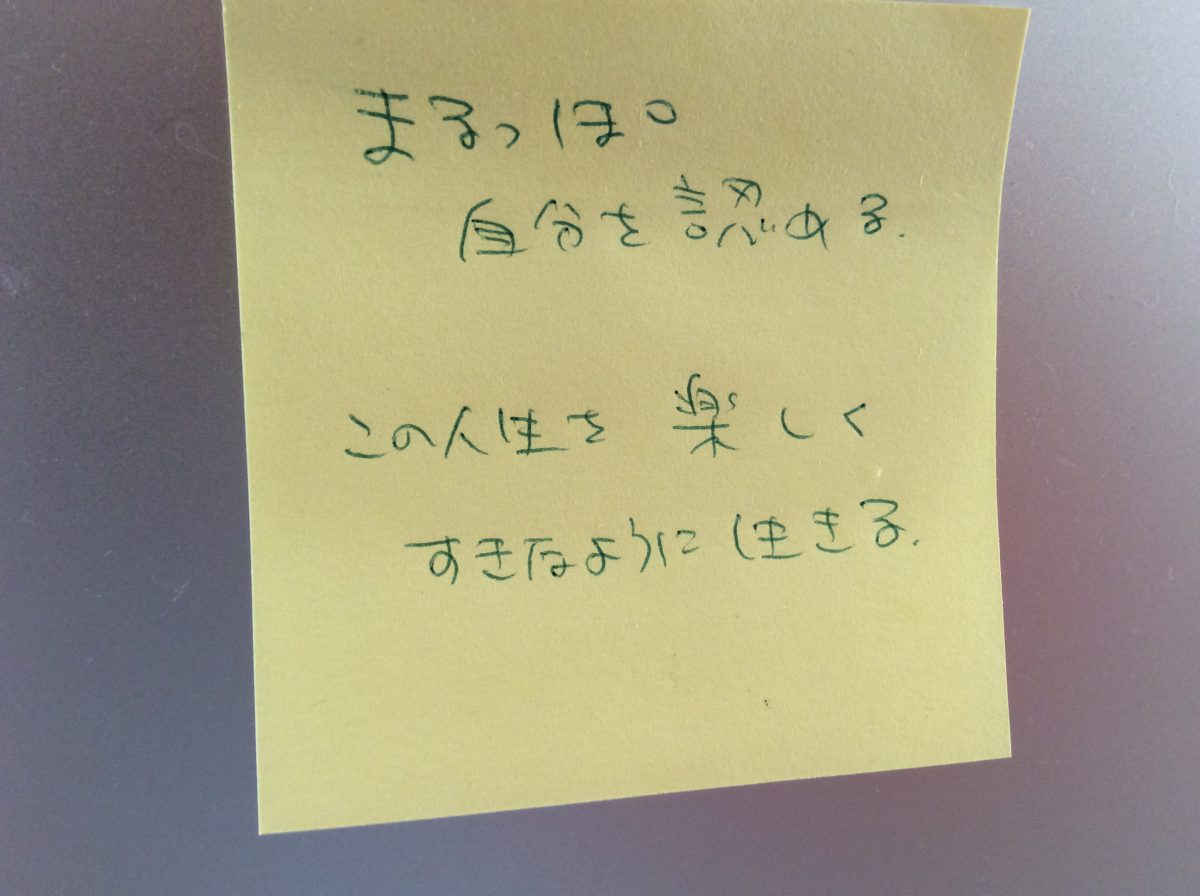 まるっぽ
自分を認める.
この人生を楽しく
すきなように生きる.